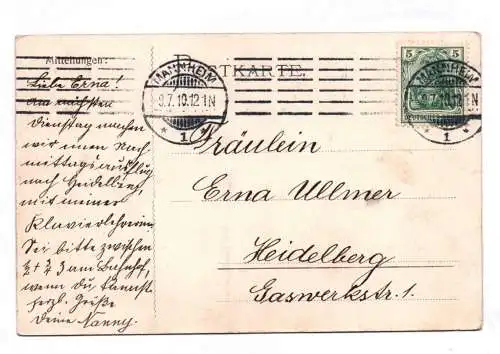 Mitteilungen:
POSTKARTE.
MANNHEIM
9.7.10.12-1N
* 1 *
5 5
MANNHEIM
9.7.10.12-1N
1 *
Liebe Erna!
Am nächsten
Dienstag machen
wir einen Nach
mittagsausflug
nach Heidelberg
mit meiner
Klavierlehrerin.
Sei bitte zwischen
½ + ¾ 3 am Bahnhof,
wenn du kannst.
herzl. Grüße
Deine Nanny.
Fräulein
Erna Ullmer
Heidelberg
Gaswerkstr. 1.